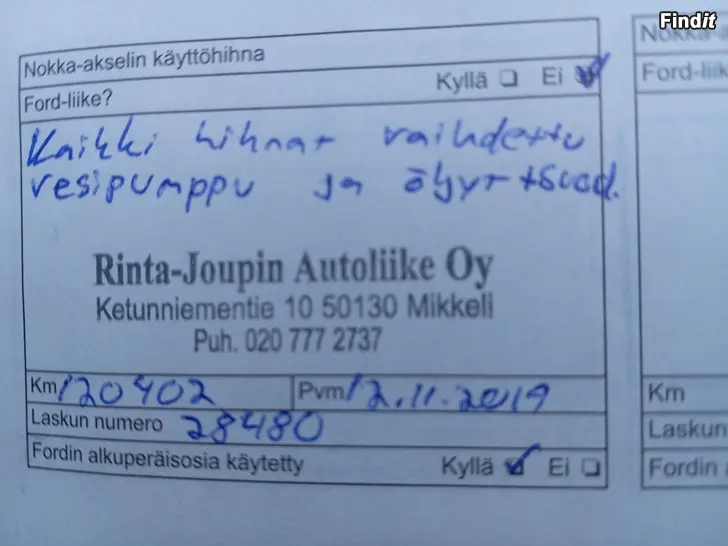 Findit
Nokka-akselin käyttöhihna
Ford-liike? Kyllä Ei
Kaikki hihnat vaihdettu
vesipumppu ja öljyt + suod.
Rinta-Joupin Autoliike Oy
Ketunniementie 10 50130 Mikkeli
Puh. 020 777 2737
Km 120402 Pvm 12.11.2019
Laskun numero 28480
Fordin alkuperäisosia käytetty Kyllä Ei
Nokka-a
Ford-liik
Km
Laskun
Fordin a